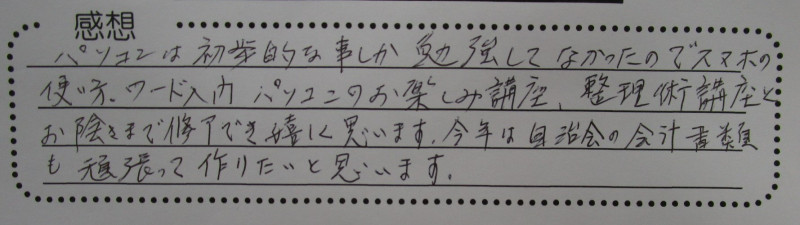 感想
パソコンは初歩的な事しか勉強してなかったのでスマホの
使い方、ワード入門 パソコンのお楽しみ講座、整理術講座と
お陰さまで修了でき嬉しく思います。今年は自治会の会計書類
も頑張って作りたいと思います。